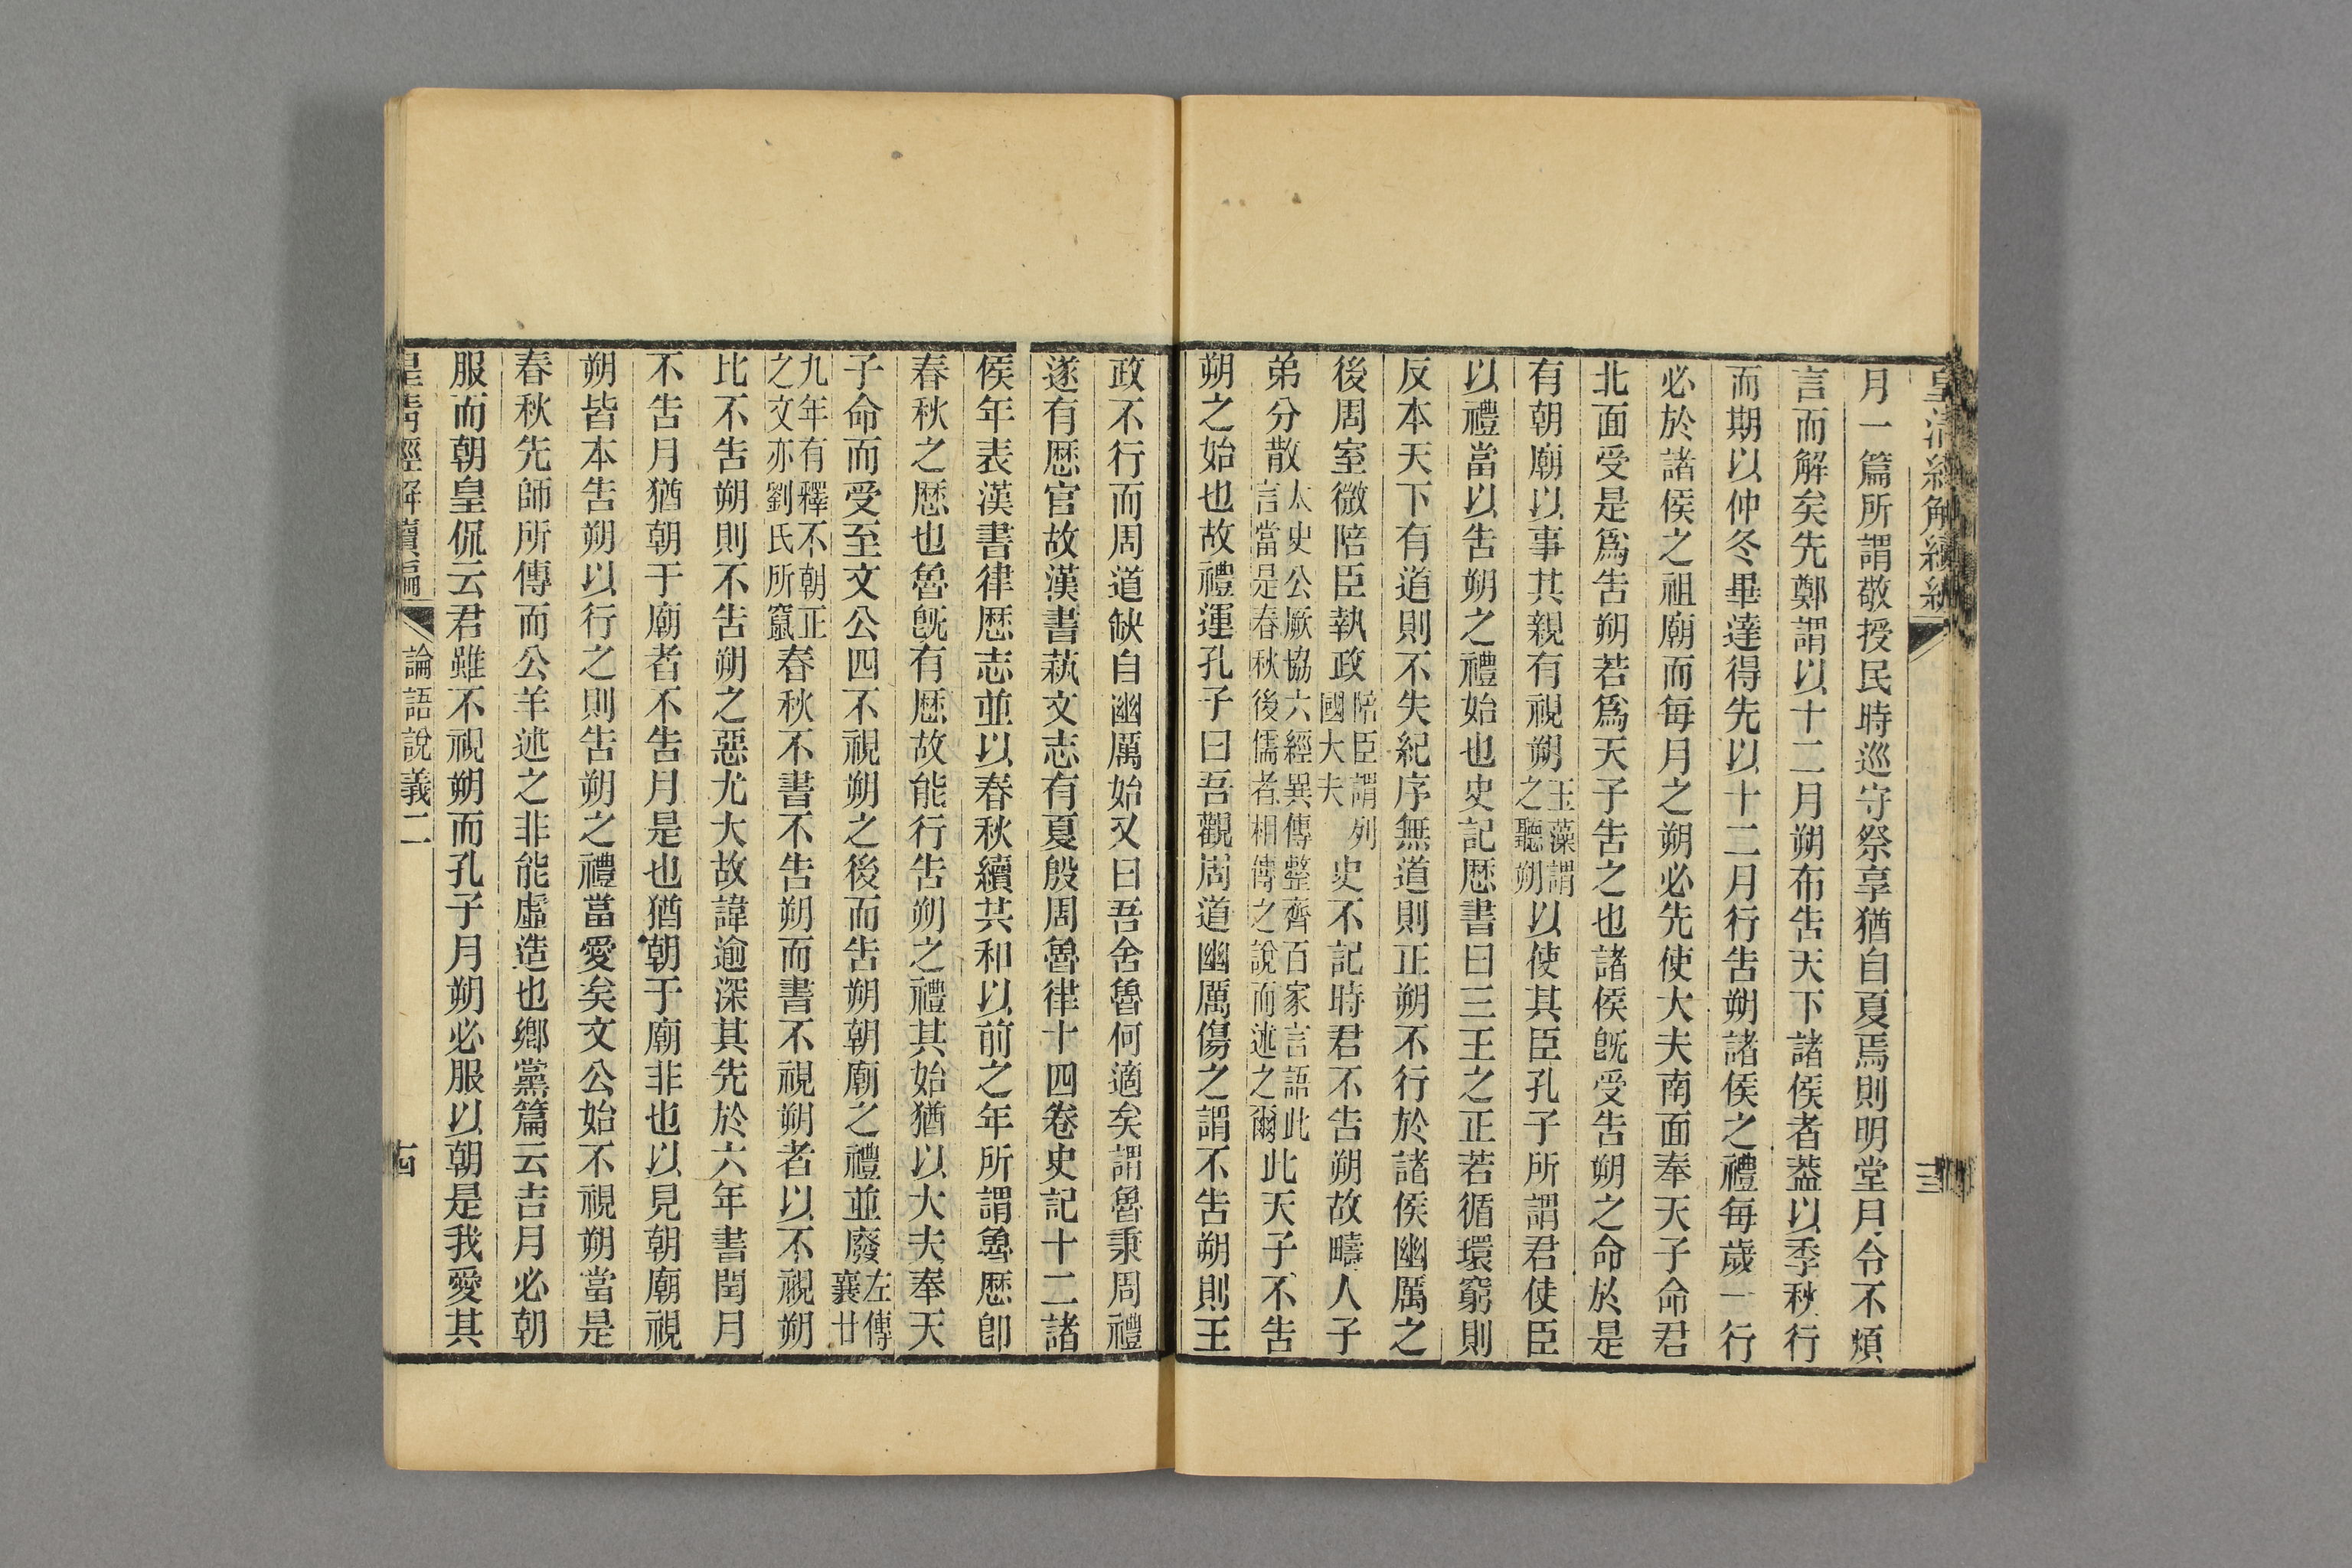 皇清經解續編
三
月一篇所謂敬授民時巡守祭享猶自夏焉則明堂月令不煩
言而解矣先鄭謂以十二月朔布告天下諸侯者葢以季秋行
而期以仲冬畢達得先以十二月行告朔諸侯之禮每歲一行
必於諸侯之祖廟而每月之朔必先使大夫南面奉天子命君
北面受是爲告朔若爲天子告之也諸侯旣受告朔之命於是
有朝廟以事其親有視朔玉藻謂之聽朔以使其臣孔子所謂君使臣
以禮當以告朔之禮始也史記厯書曰三王之正若循環窮則
反本天下有道則不失紀序無道則正朔不行於諸侯幽厲之
後周室微陪臣執政陪臣謂列國大夫史不記時君不告朔故疇人子
弟分散太史公厥協六經異傳整齊百家言語此言當是春秋後儒者相傳之說而述之爾此天子不告
朔之始也故禮運孔子曰吾觀周道幽厲傷之謂不告朔則王
政不行而周道缺自幽厲始又曰吾舍魯何適矣謂魯秉周禮
遂有厯官故漢書蓺文志有夏殷周魯律十四卷史記十二諸
侯年表漢書律厯志並以春秋續共和以前之年所謂魯厯卽
春秋之厯也魯旣有厯故能行告朔之禮其始猶以大夫奉天
子命而受至文公四不視朔之後而告朔朝廟之禮並廢左傳襄廿
九年有釋不朝正之文亦劉氏所竄春秋不書不告朔而書不視朔者以不視朔
比不告朔則不告朔之惡尤大故諱逾深其先於六年書閏月
不告月猶朝于廟者不告月是也猶朝于廟非也以見朝廟視
朔皆本告朔以行之則告朔之禮當愛矣文公始不視朔當是
春秋先師所傳而公羊述之非能虛造也鄉黨篇云吉月必朝
服而朝皇侃云君雖不視朔而孔子月朔必服以朝是我愛其
皇清經解續編
論語說義二
古